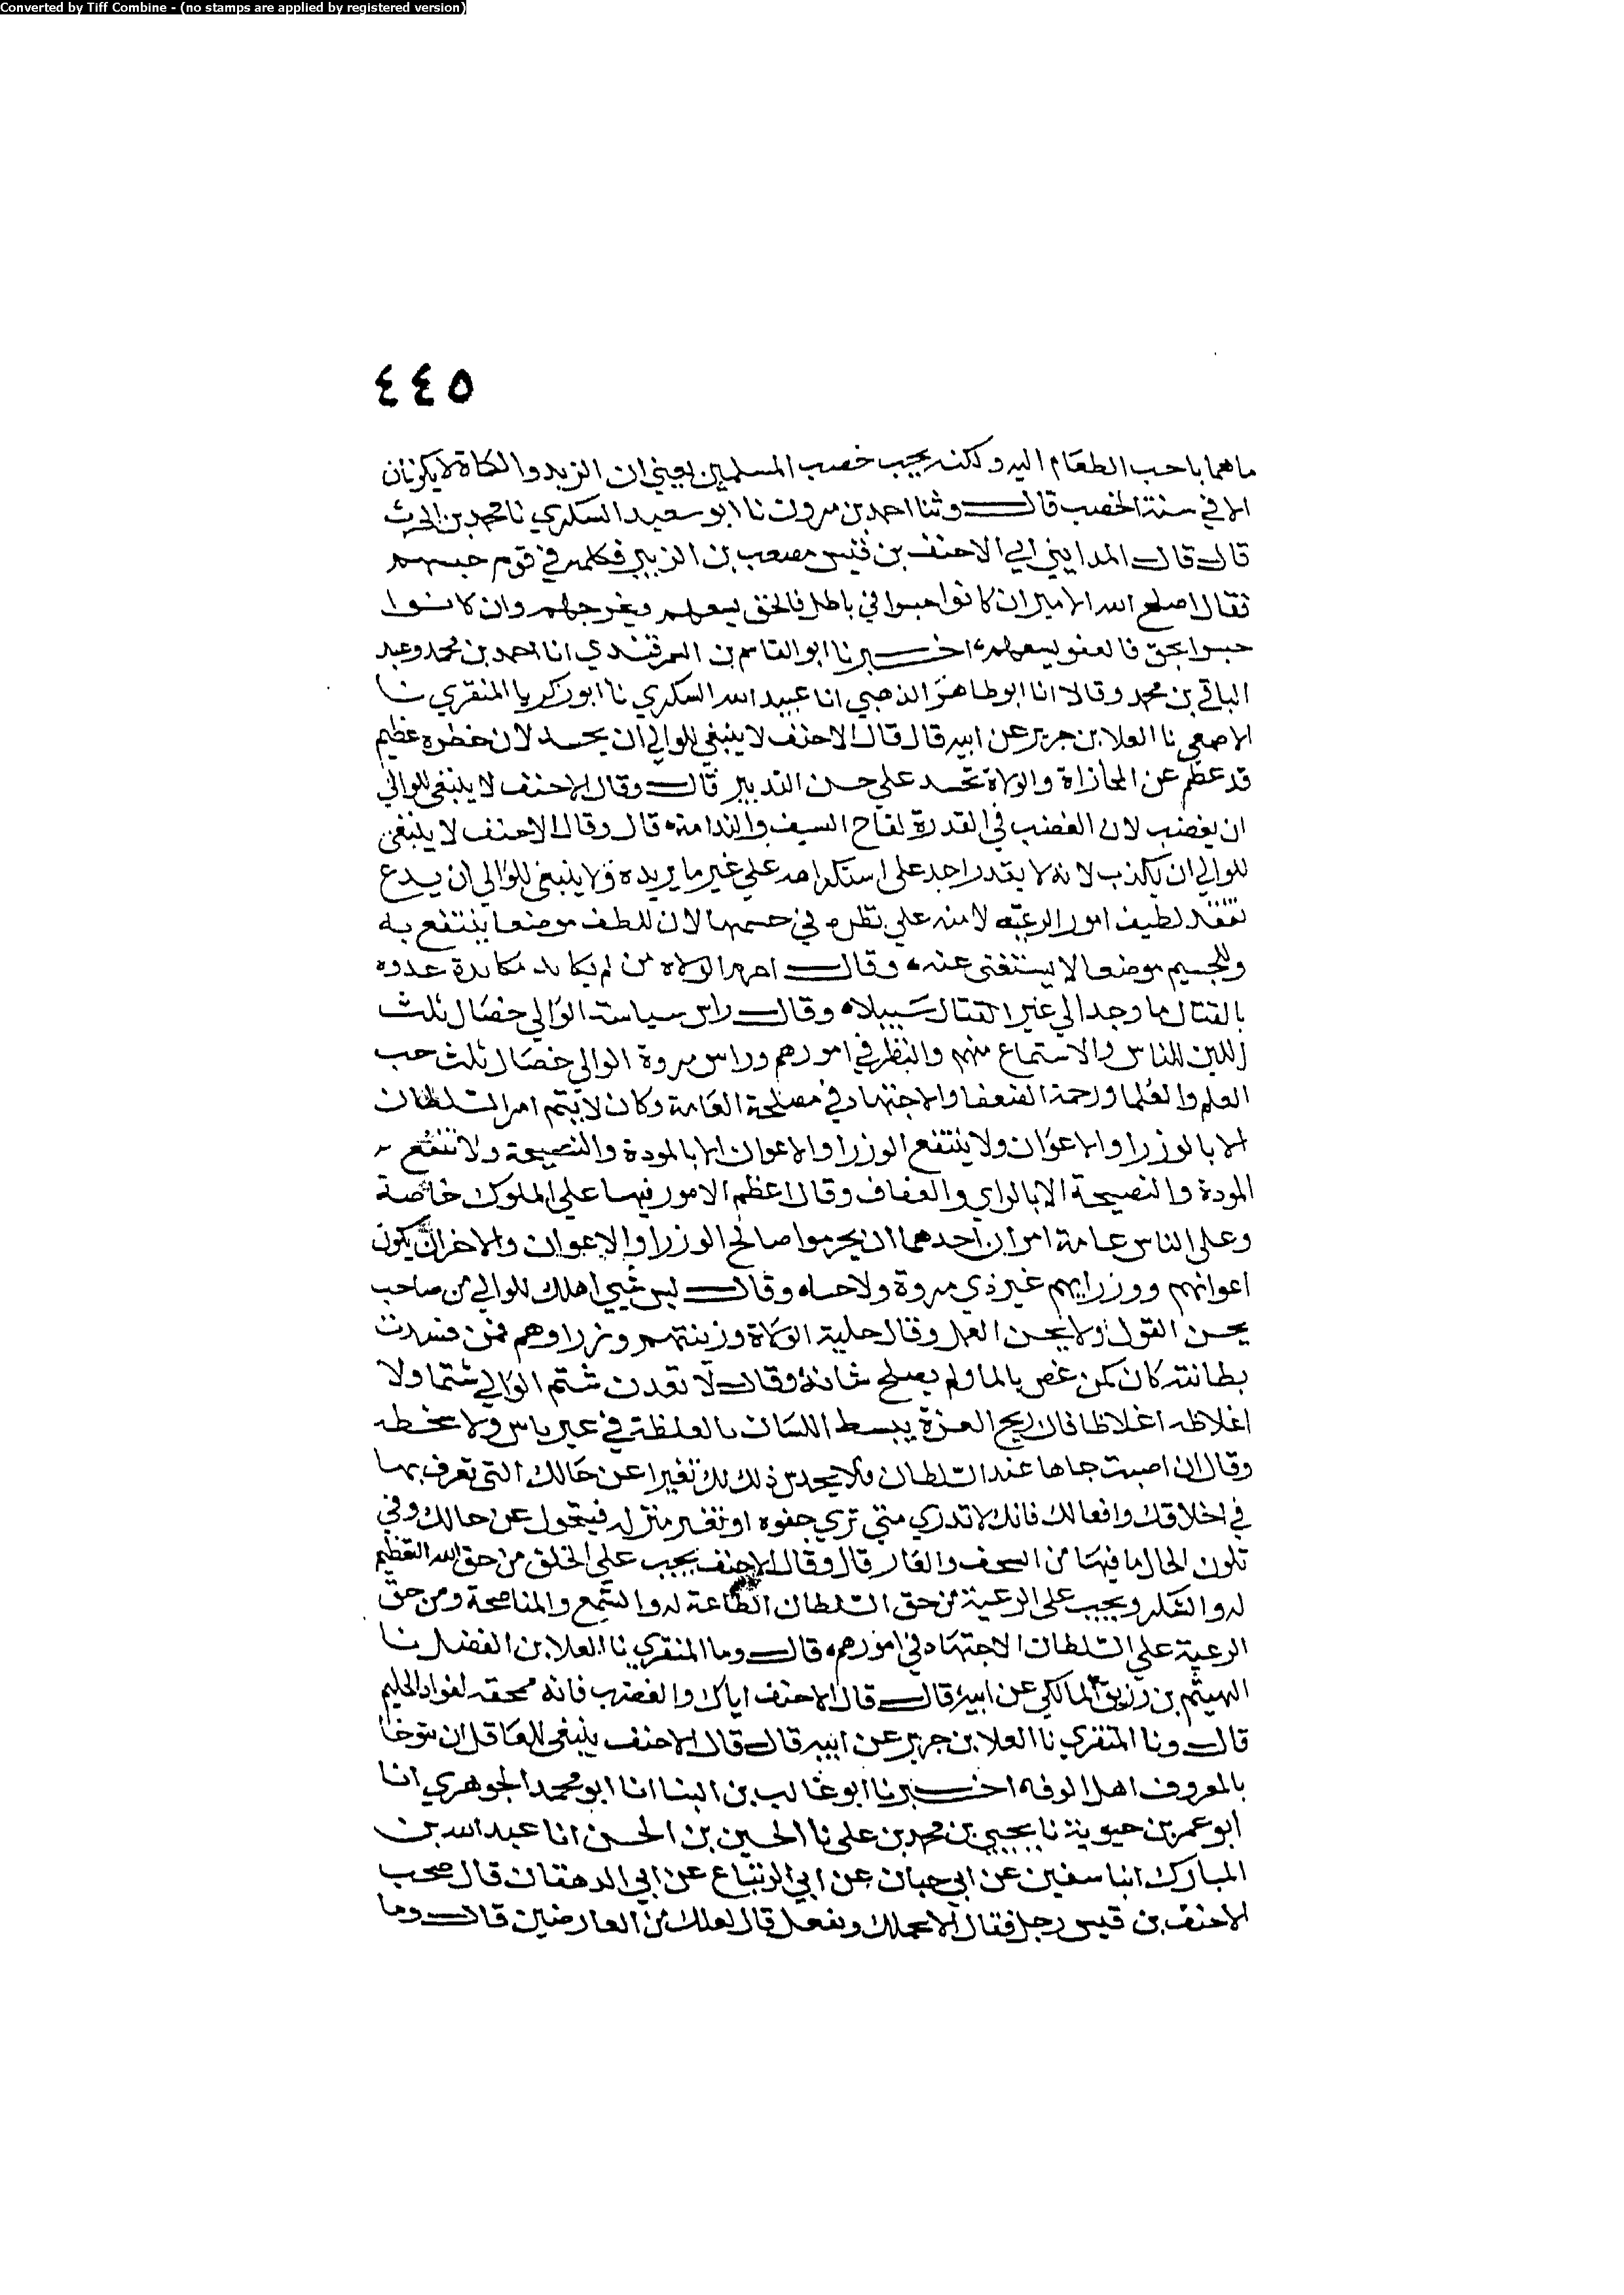 Converted by Tiff Combine - (no stamps are applied by registered version)
٤٤٥
ما هما باحب الطعام اليه ولكنه يحب خصب المسلمين يعني ان الزبد والكماة لا يكونان
الا في سنة الخصب قال وثنا احمد بن مروان نا ابو سعيد السكري نا محمد بن الحرث
قال قال المدايني اتي الاحنف بن قيس مصعب بن الزبير فكلمه في قوم حبسهم
فقال اصلح الله الامير ان كانوا حبسوا في باطل فالحق يسعهم ويخرجهم وان كانوا
حبسوا بحق فالعفو يسعهم اخبرنا ابو القاسم بن السمرقندي انا احمد بن محمد وعبد
الباقي بن محمد وقالا انا ابو طاهر الذهبي انا عبيد الله السكري نا ابو زكريا المنقري نا
الاصمعي نا العلا بن جرير عن ابيه قال قال الاحنف لا ينبغي للوالي ان يحسد لان خطره عظيم
قد عظم عن المجازاة والولاة تحسد على حسن التدبير قال وقال الاحنف لا ينبغي للوالي
ان يغضب لان الغضب في القدرة لقاح السيف والندامة قال وقال الاحنف لا ينبغي
للوالي ان يكذب لانه لا يقدر احد على استكراهه علي غير ما يريده ولا ينبغي للوالي ان يدع
تفقد لطيف امور الرعية لامنه علي نظره في جسمها لان للطف موضعا ينتفع به
وللجسيم موضعا لا يستغنى عنه وقال امور الولاه من لم يكايد مكايدة عدوه
بالقتال ما وجد الي غير القتال سبيلا وقال راس سياسة الوالي خصال ثلث
اللين للناس والاستماع منهم والنظر في امورهم وراس مروة الوالي خصال ثلث حب
العلم والعلما ورحمة الضعفا والاجتهاد في مصلحة العامة وكان لا يتم امر السلطان
الا بالوزرا والاعوان ولا ينتفع الوزرا والاعوان الا بالمودة والنصيحة ولا تنفع
المودة والنصيحة الا بالراي والعفاف وقال اعظم الامور فيها علي الملوك خاصة
وعلى الناس عامة امران احدهما ان يحرموا صالح الوزرا والاعوان والاخر ان يكون
اعوانهم ووزرايهم غير ذي مروة ولا حياه وقال ليس شيي اهلك للوالي من صاحب
يحسن القول ولا يحسن العمل وقال حلية الولاة وزينتهم وزراوهم فمن فسدت
بطانته كان كمن غص بالما ولم يصلح شانه وقال لا تعدن شتم الوالي شتما ولا
اغلاظه اغلاظا فان ريح العزة يبسط اللسان بالغلظة في غير باس ولا سخطه
وقال ان اصبت جاها عند السلطان فلا يحدثن ذلك لك تغيرا عن حالك التي تعرف بها
في اخلاقك وافعالك فانك لا تدري متي تري جفوه او تغير منزله فيتحول عن حالك وفي
تلون الحال ما فيها من السخف والعار قال وقال الاحنف يجب علي الخلق من حق الله التعظيم
له والشكر ويجب على الرعية من حق السلطان الطاعة له والسمع والمناصحة ومن حق
الرعية علي السلطان الاجتهاد في امورهم قال ونا المنقري نا العلا بن الفضل نا
الهيثم بن رزيق المالكي عن ابيه قال قال الاحنف اياك والغضب فانه ممحقه لفواد الحليم
قال ونا المنقري نا العلا بن جرير عن ابيه قال قال الاحنف ينبغي للعاقل ان يتوخا
بالمعروف اهل الوفاء اخبرنا ابو غالب بن البنا انا ابو محمد الجوهري انا
ابو عمر بن حيوية نا يحيي بن محمد بن علي نا الحسين بن الحسن انا عبد الله بن
المبارك انبا سفين عن ابي حيان عن ابي الزنباع عن ابي الدهقان قال صحب
الاحنف بن قيس رجل فقال الا نحملك ونفعل قال لعلك من العارضين قال وما